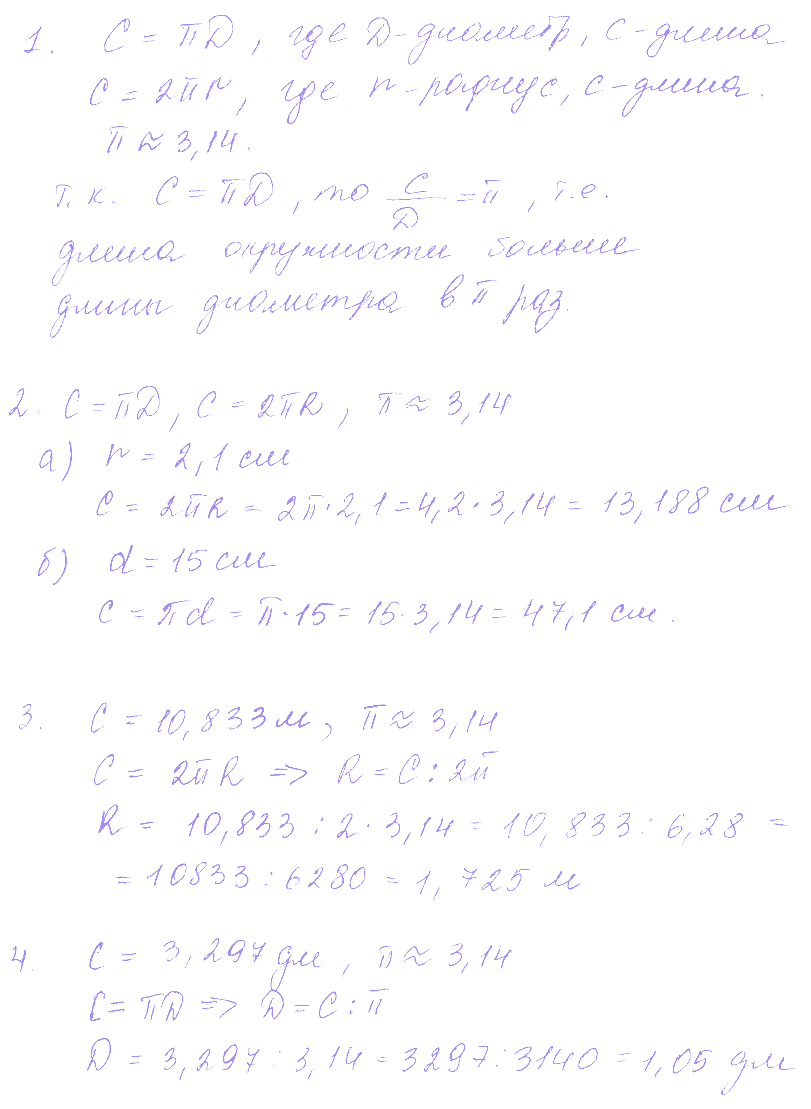 1. C = πD, где D-диаметр, C-длина
C = 2πr, где r-радиус, C-длина.
π ≈ 3,14.
т.к. C = πD, то C/D = π, т.е.
длина окружности больше
длины диаметра в π раз.
2. C = πD, C = 2πR, π ≈ 3,14
а) r = 2,1 см
C = 2πR = 2π·2,1 = 4,2·3,14 = 13,188 см
б) d = 15 см
C = πd = π·15 = 15·3,14 = 47,1 см.
3. C = 10,833 м, π ≈ 3,14
C = 2πR => R = C : 2π
R = 10,833 : 2·3,14 = 10,833 : 6,28 =
= 10833 : 6280 = 1,725 м
4. C = 3,297 дм, π ≈ 3,14
C = πD => D = C : π
D = 3,297 : 3,14 = 3297 : 3140 = 1,05 дм